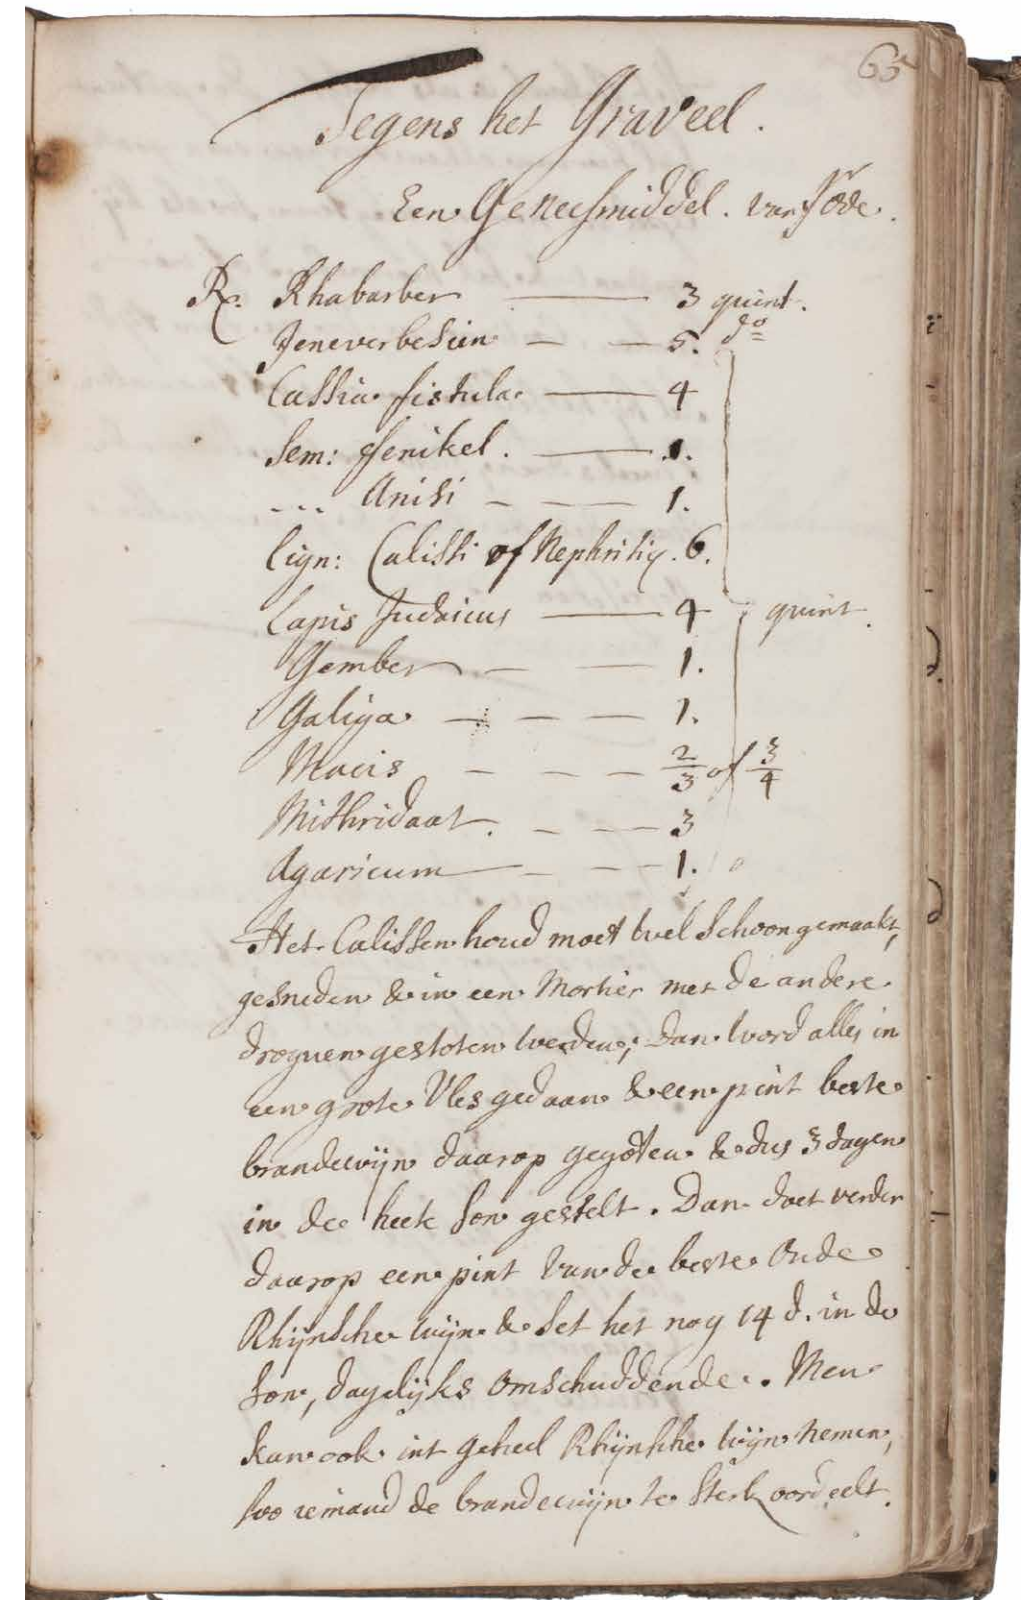 65
Tegens het Graveel.
Een Geneesmiddel. van
R. Rhabarber — 3 quint.
Jeneverbesien — — 5. do
Cassia fistula — 4
Sem: ffenikel. — 1.
... Anisi — — 1.
lign: Calissi of Nephritiq. 6.
Lapis Judaicus — 4 quint.
Gember — — 1.
Galiga — — — 1.
Macis — — — 2/3 of 3/4
Mithridaat. — — 3
Agaricum — — — 1.
Het Calissen houd moet wel schoon gemaakt,
gesneden & in een Mortier met de andere
droguen gestoten werden; Dan word alles in
een grote Vles gedaan & een pint beste
brandewijn daarop gegoten & dus 3 dagen
in de heete son gestelt. Dan doet verder
daarop een pint van de beste Oude
Rhijnsche wijn & set het nog 14 d. in de
son, dagelijks omschuddende. Men
kan ook int geheel Rhijnsche wijn nemen,
soo iemand de brandewijn te sterk oordeelt.